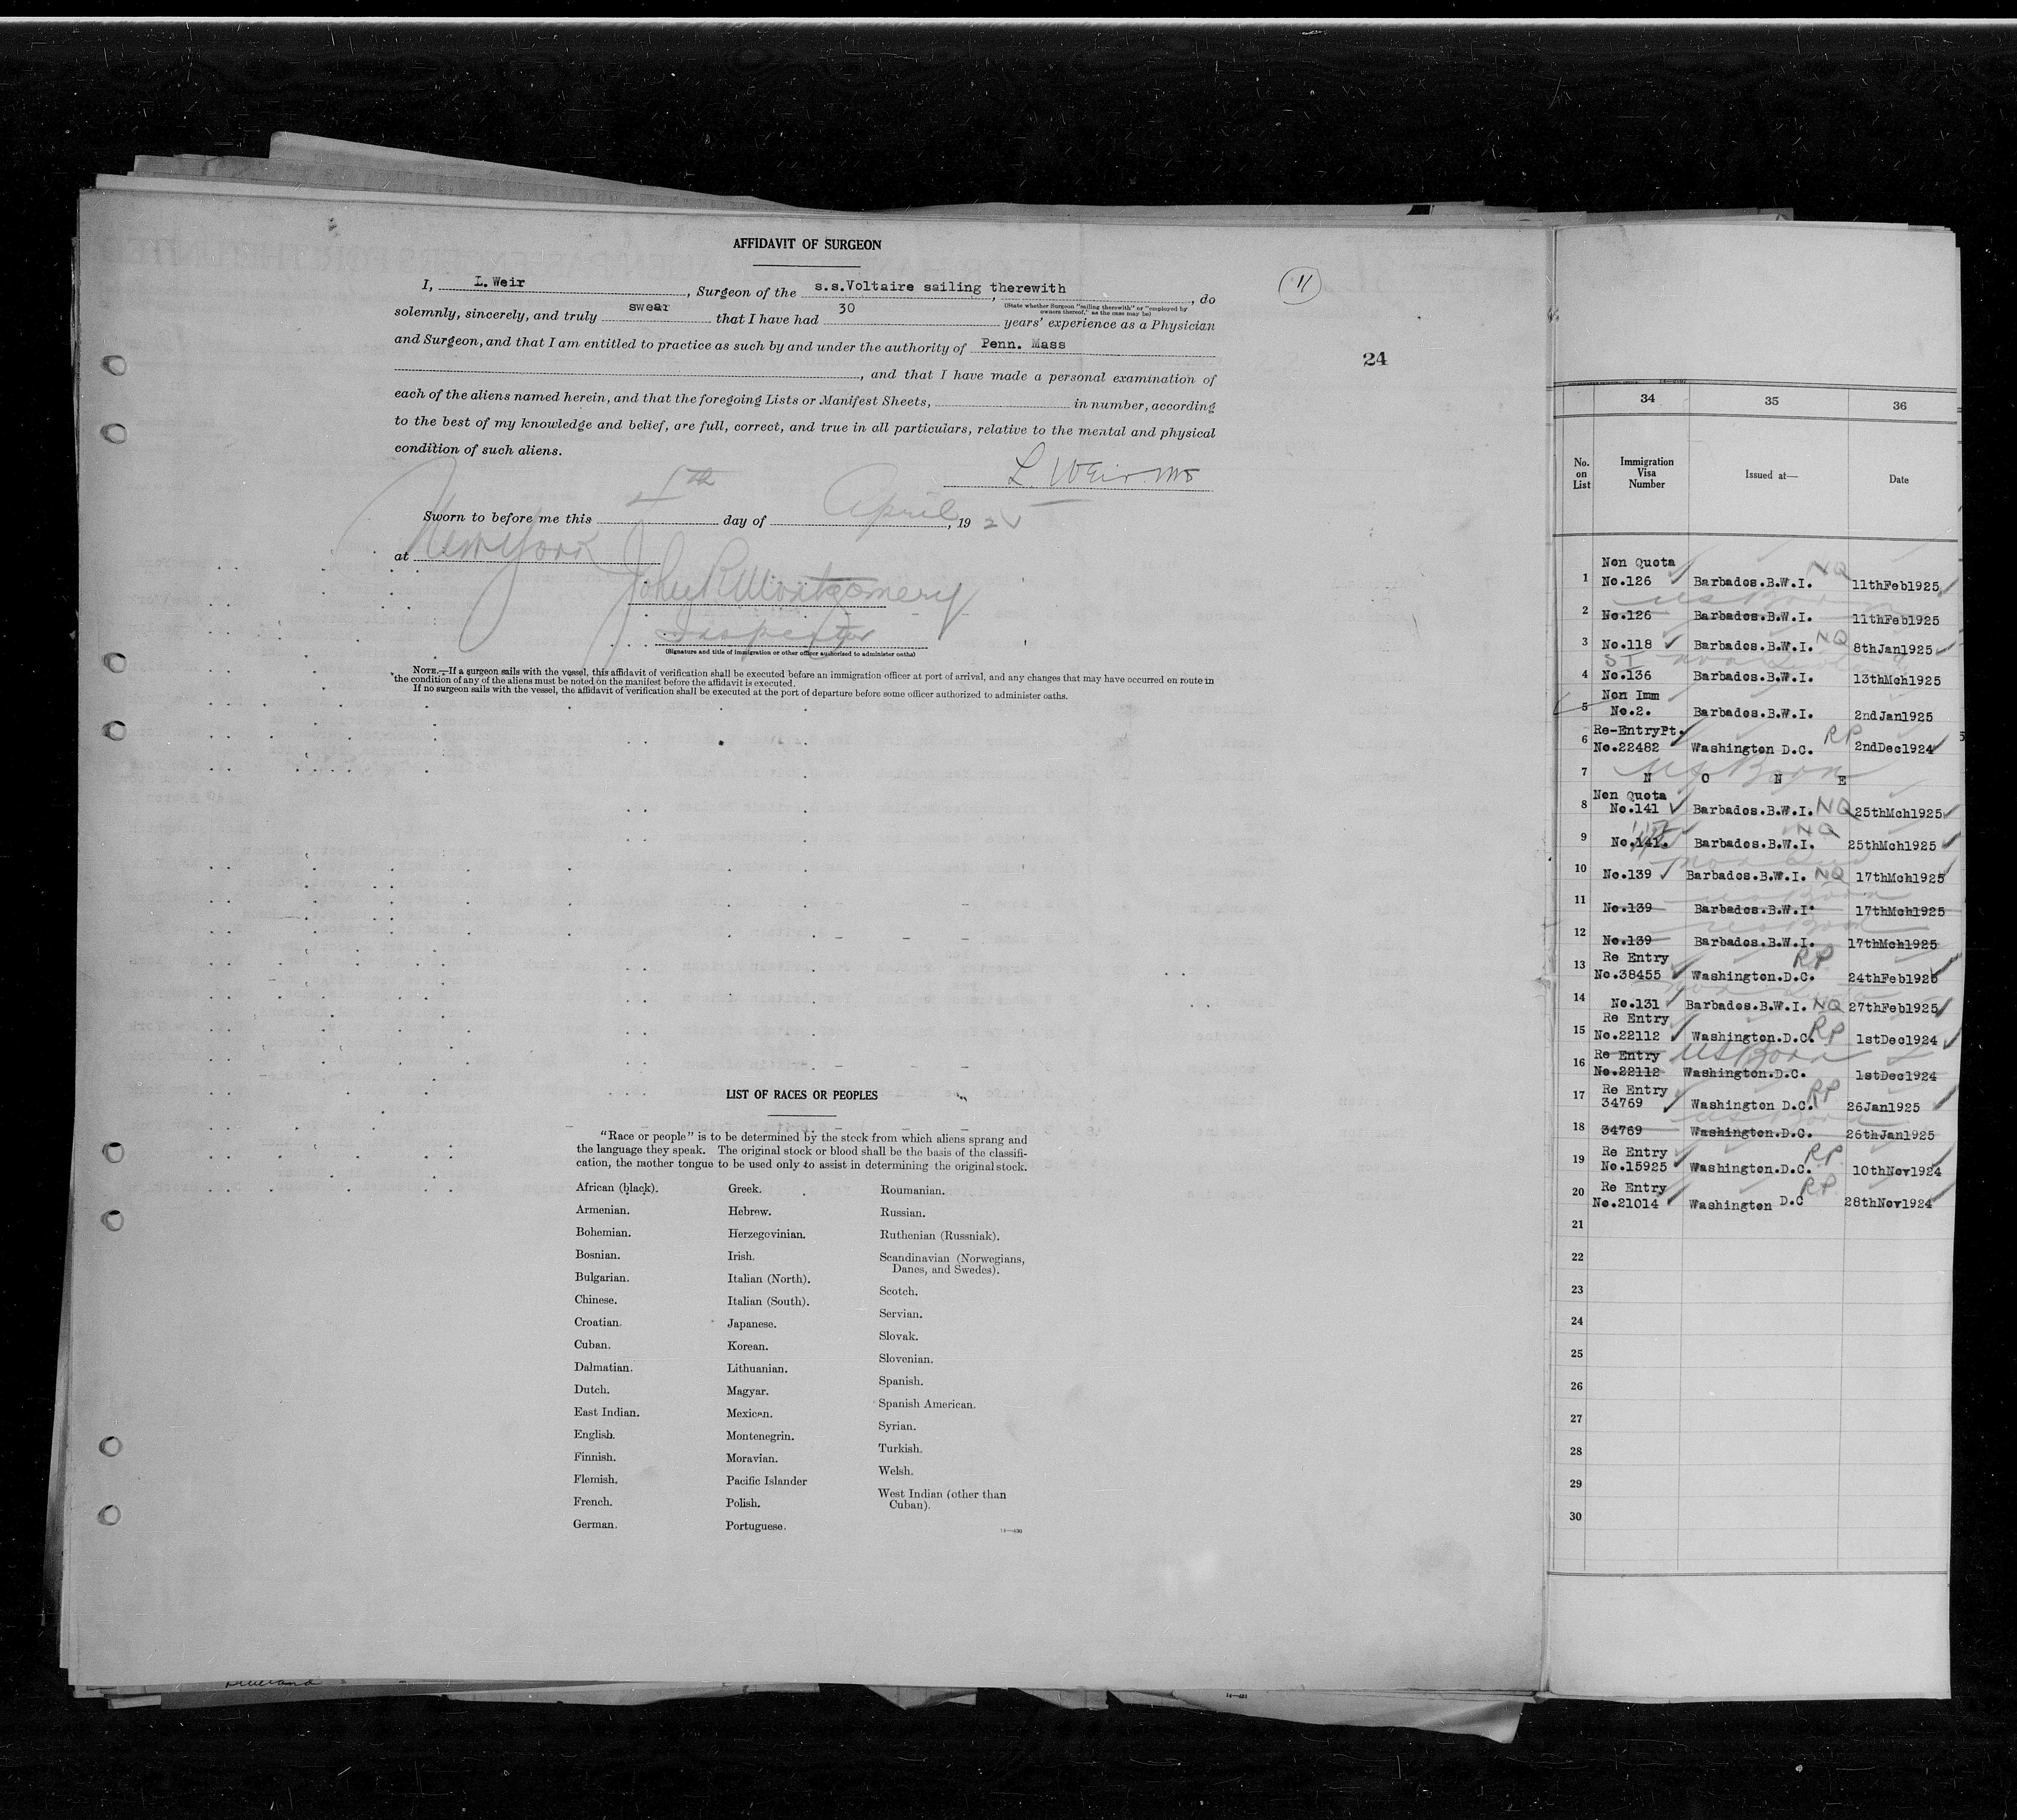 AFFIDAVIT OF SURGEON
11
I, L. Weir, Surgeon of the s.s.Voltaire sailing therewith, do
(State whether Surgeon "sailing therewith" or "employed by
owners thereof," as the case may be)
solemnly, sincerely, and truly swear that I have had 30 years' experience as a Physician
and Surgeon, and that I am entitled to practice as such by and under the authority of Penn. Mass
24
, and that I have made a personal examination of
each of the aliens named herein, and that the foregoing Lists or Manifest Sheets, in number, according
to the best of my knowledge and belief, are full, correct, and true in all particulars, relative to the mental and physical
condition of such aliens.
L. Weir. MD
Sworn to before me this th day of April, 192
at New York
John R Montgomery
Inspector
(Signature and title of immigration or other officer authorized to administer oaths)
NOTE.—If a surgeon sails with the vessel, this affidavit of verification shall be executed before an immigration officer at port of arrival, and any changes that may have occurred en route in
the condition of any of the aliens must be noted on the manifest before the affidavit is executed.
If no surgeon sails with the vessel, the affidavit of verification shall be executed at the port of departure before some officer authorized to administer oaths.
LIST OF RACES OR PEOPLES
"Race or people" is to be determined by the stock from which aliens sprang and
the language they speak. The original stock or blood shall be the basis of the classifi-
cation, the mother tongue to be used only to assist in determining the original stock.
African (black).
Armenian.
Bohemian.
Bosnian.
Bulgarian.
Chinese.
Croatian.
Cuban.
Dalmatian.
Dutch.
East Indian.
English.
Finnish.
Flemish.
French.
German.
Greek.
Hebrew.
Herzegovinian.
Irish.
Italian (North).
Italian (South).
Japanese.
Korean.
Lithuanian.
Magyar.
Mexican.
Montenegrin.
Moravian.
Pacific Islander
Polish.
Portuguese.
Roumanian.
Russian.
Ruthenian (Russniak).
Scandinavian (Norwegians,
Danes, and Swedes).
Scotch.
Servian.
Slovak.
Slovenian.
Spanish.
Spanish American.
Syrian.
Turkish.
Welsh.
West Indian (other than
Cuban).
14—430
34 35 36
No. on List Immigration Visa Number Issued at— Date
Non Quota
1 No.126 Barbados.B.W.I. NQ 11thFeb1925
US Born
2 No.126 Barbados.B.W.I. 11thFeb1925
3 No.118 Barbados.B.W.I. NQ 8thJan1925
4 No.136 Barbados.B.W.I. 13thMch1925
Non Imm
5 No.2. Barbados.B.W.I. 2ndJan1925
Re-EntryPt.
6 No.22482 Washington D.C. RP 2ndDec1924
US Born
7 N O N E
Non Quota
8 No.141 Barbados.B.W.I. NQ 25thMch1925
9 No.141. Barbados.B.W.I. NQ 25thMch1925
10 No.139 Barbados.B.W.I. NQ 17thMch1925
US Born
11 No.139 Barbados.B.W.I. 17thMch1925
US Born
12 No.139 Barbados.B.W.I. 17thMch1925
Re Entry
13 No.38455 Washington.D.C. RP 24thFeb1925
14 No.131 Barbados.B.W.I. NQ 27thFeb1925
Re Entry
15 No.22112 Washington.D.C. RP 1stDec1924
Re Entry US Born
16 No.22112 Washington.D.C. 1stDec1924
Re Entry
17 34769 Washington D.C. RP 26Jan1925
US Born
18 34769 Washington.D.C. 26thJan1925
Re Entry
19 No.15925 Washington.D.C. RP 10thNov1924
Re Entry
20 No.21014 Washington D.C RP 28thNov1924
21
22
23
24
25
26
27
28
29
30